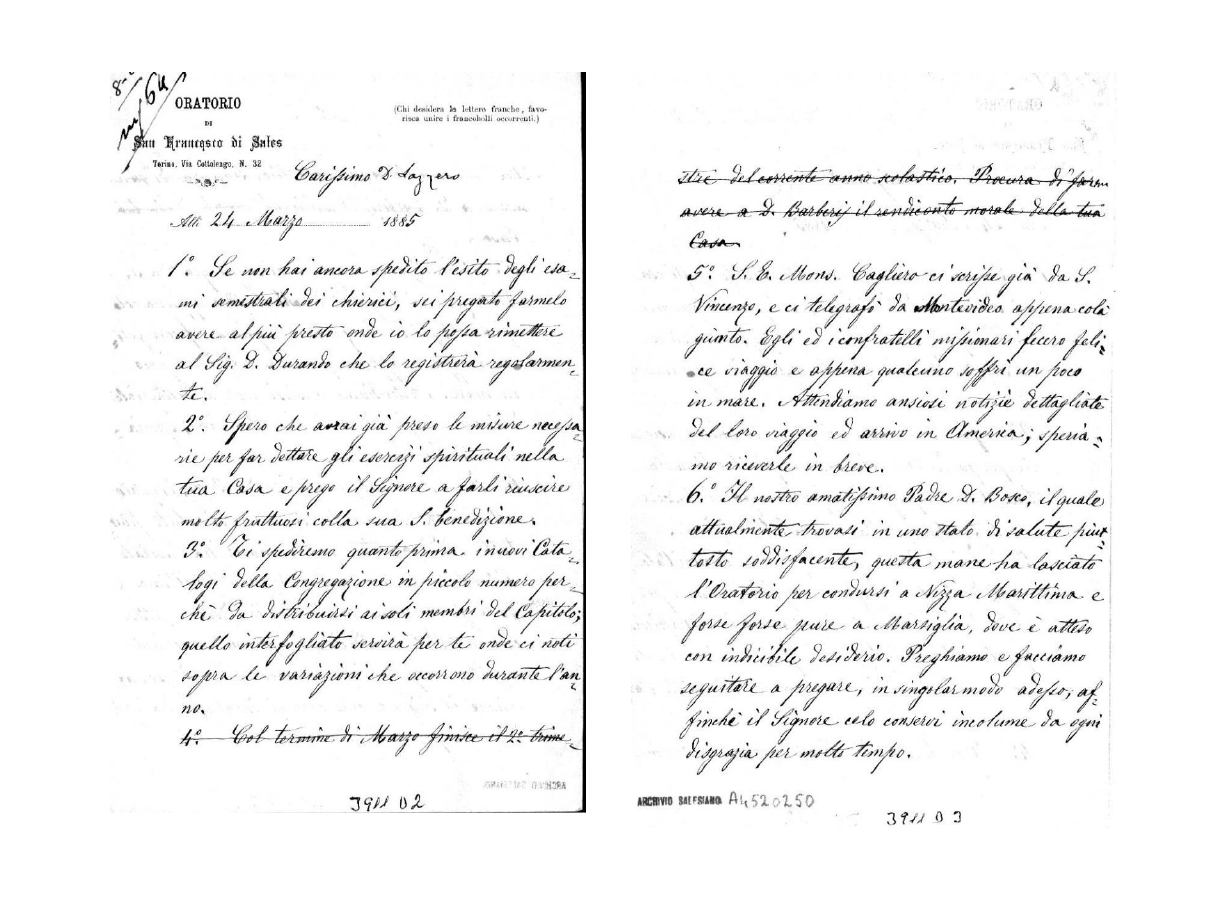 8
m/64
ORATORIO
DI
San Francesco di Sales
Torino, Via Cottolengo, N. 32
(Chi desidera la lettera franche, favo-
risca unire i francobolli occorrenti.)
Carissimo D. Lazzero
Addì 24 Marzo 1885
1°. Se non hai ancora spedito l'esito degli esa-
mi semestrali dei chierici, sei pregato farmelo
avere al più presto onde io lo possa rimettere
al Sig. D. Durando che lo registrerà regolarmen-
te.
2°. Spero che avrai già preso le misure necessa-
rie per far dettare gli esercizi spirituali nella
tua Casa e prego il Signore a farli riuscire
molto fruttuosi colla sua S. benedizione.
3°. Ti spediremo quanto prima i nuovi Cata-
logi della Congregazione in piccolo numero per-
chè da distribuirsi ai soli membri del Capitolo;
quello interfogliato servirà per te onde ci noti
sopra le variazioni che occorrono durante l'an-
no.
4°. Col termine di Marzo finisce il 2° trime-
ARCHIVIO SALESIANO
3911 D 2
stre del corrente anno scolastico. Procura di farm
avere a D. Barberis il rendiconto morale della tua
Casa.
5°. S. E. Mons. Cagliero ci scrisse già da S.
Vincenzo, e ci telegrafò da Montevideo appena colà
giunto. Egli ed i confratelli missionari fecero feli-
ce viaggio e appena qualcuno soffrì un poco
in mare. Attendiamo ansiosi notizie dettagliate
del loro viaggio ed arrivo in America; speria-
mo riceverle in breve.
6.° Il nostro amatissimo Padre D. Bosco, il quale
attualmente trovasi in uno stato di salute piut-
tosto soddisfacente, questa mane ha lasciato
l'Oratorio per condursi a Nizza Marittima e
forse forse pure a Marsiglia, dove è atteso
con indicibile desiderio. Preghiamo e facciamo
seguitare a pregare, in singolar modo adesso, af-
finchè il Signore celo conservi incolume da ogni
disgrazia per molto tempo.
ARCHIVIO SALESIANO A4520250
3911 D 3